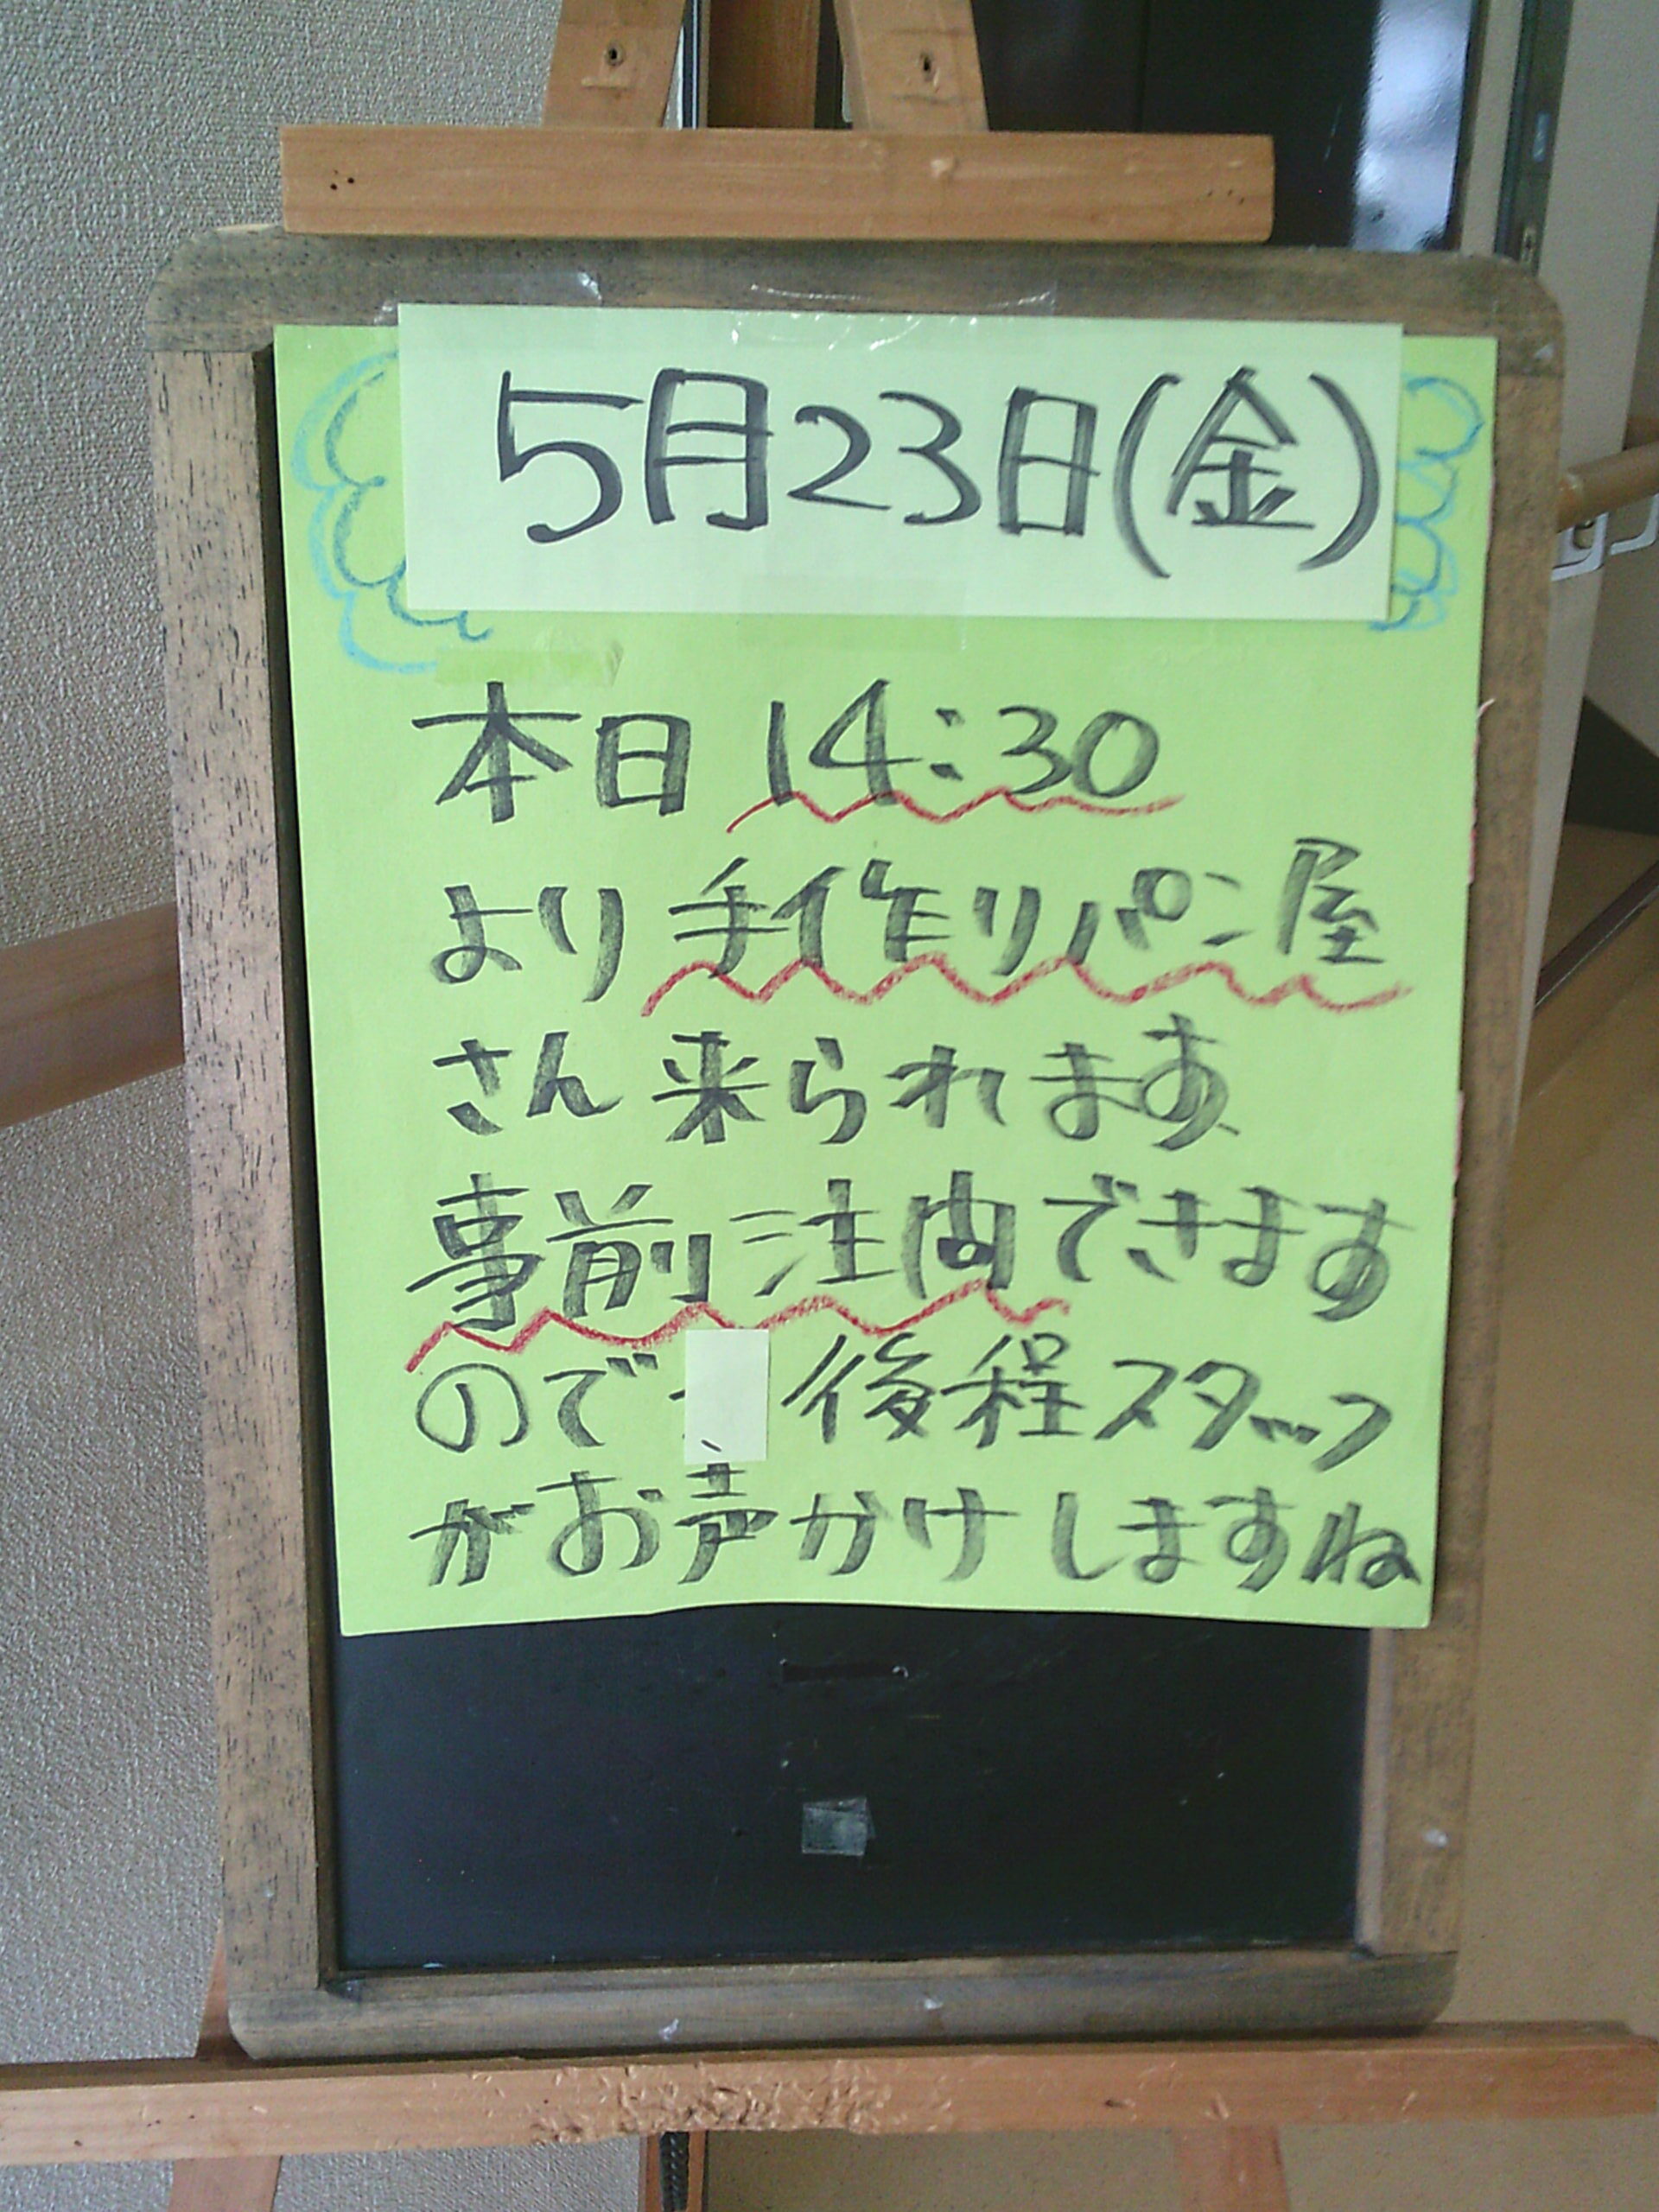 5月23日(金)
本日 14:30
より手作りパン屋
さん来られます
事前注文できます
ので 後程スタッフ
がお声かけしますね